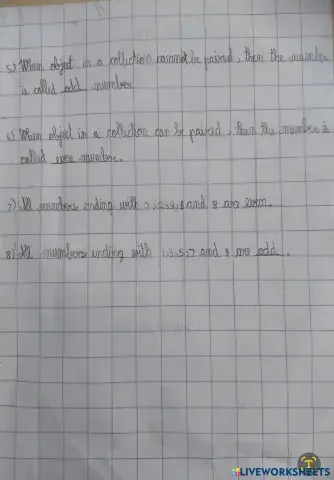 5) When object in a collection cannot be paired, then the number
is called odd number.
6) When object in a collection can be paired, then the number is
called even number.
7) All numbers ending with 0,2,4,6 and 8 are even.
8) All numbers ending with 1,3,5,7 and 9 are odd.
LIVEWORKSHEETS